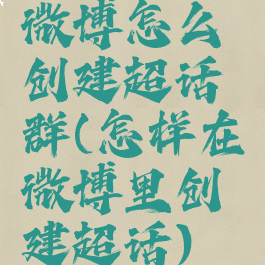 微博怎么
创建超话
群(怎样在
微博里创
建超话)